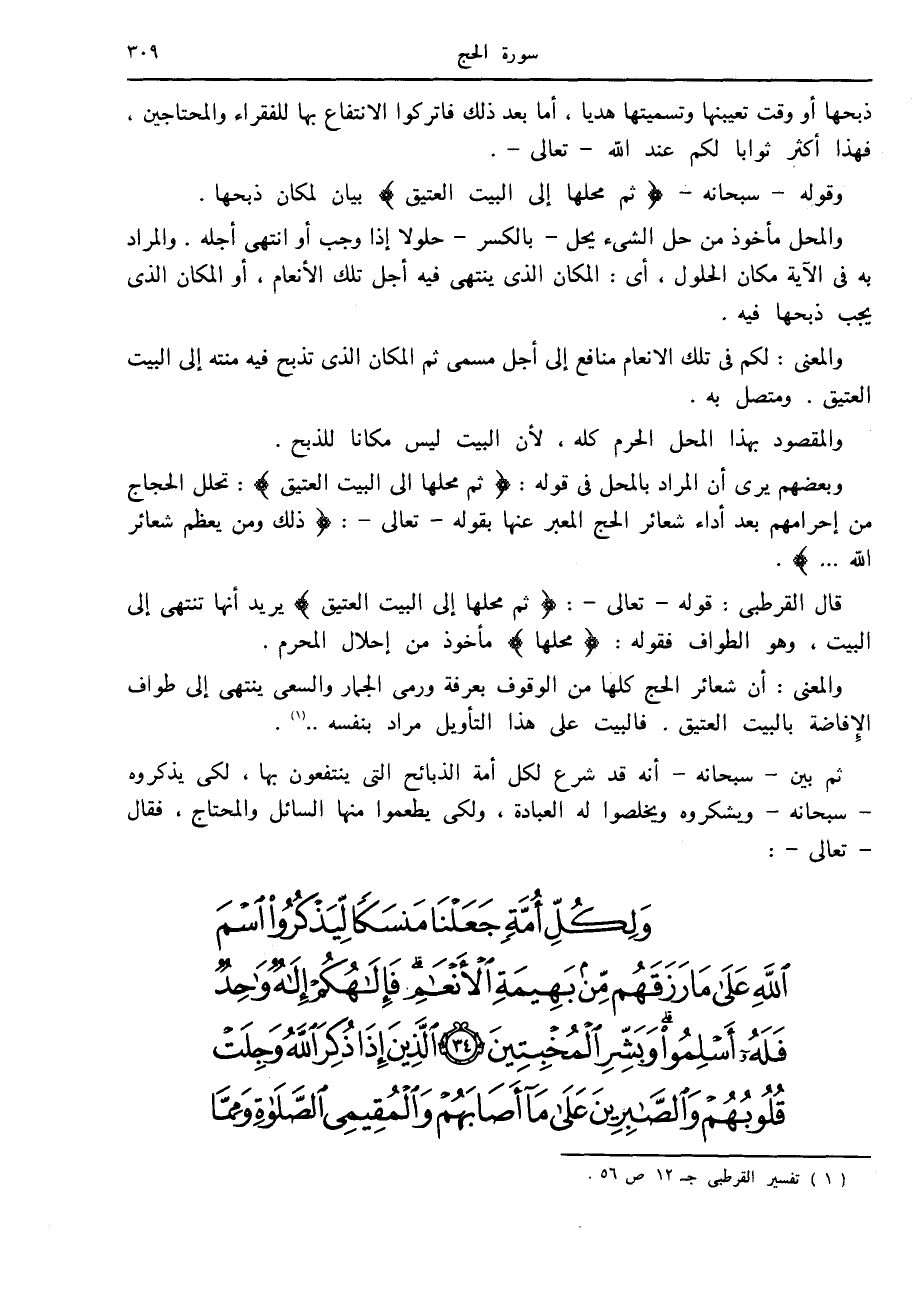 سورة الحج ٣٠٩
ذبحها أو وقت تعيينها وتسميتها هديا ، أما بعد ذلك فاتركوا الانتفاع بها للفقراء والمحتاجين ،
فهذا أكثر ثوابا لكم عند الله – تعالى – .
وقوله – سبحانه – ﴿ ثم محلها إلى البيت العتيق ﴾ بيان لمكان ذبحها .
والمحل مأخوذ من حل الشىء يحل – بالكسر – حلولا إذا وجب أو انتهى أجله . والمراد
به فى الآية مكان الحلول ، أى : المكان الذى ينتهى فيه أجل تلك الأنعام ، أو المكان الذى
يجب ذبحها فيه .
والمعنى : لكم فى تلك الانعام منافع إلى أجل مسمى ثم المكان الذى تذبح فيه منته إلى البيت
العتيق . ومتصل به .
والمقصود بهذا المحل الحرم كله ، لأن البيت ليس مكانا للذبح .
وبعضهم يرى أن المراد بالمحل فى قوله : ﴿ ثم محلها الى البيت العتيق ﴾ : تحلل الحجاج
من إحرامهم بعد أداء شعائر الحج المعبر عنها بقوله – تعالى – : ﴿ ذلك ومن يعظم شعائر
الله ... ﴾ .
قال القرطبى : قوله – تعالى – : ﴿ ثم محلها إلى البيت العتيق ﴾ يريد أنها تنتهى إلى
البيت ، وهو الطواف فقوله : ﴿ محلها ﴾ مأخوذ من إحلال المحرم .
والمعنى : أن شعائر الحج كلها من الوقوف بعرفة ورمى الجمار والسعى ينتهى إلى طواف
الإفاضة بالبيت العتيق . فالبيت على هذا التأويل مراد بنفسه ..(١) .
ثم بين – سبحانه – أنه قد شرع لكل أمة الذبائح التى ينتفعون بها ، لكى يذكروه
– سبحانه – ويشكروه ويخلصوا له العبادة ، ولكى يطعموا منها السائل والمحتاج ، فقال
– تعالى – :
وَلِكُلِّ أُمَّةٍ جَعَلْنَا مَنسَكًا لِّيَذْكُرُوا۟ ٱسْمَ
ٱللَّهِ عَلَىٰ مَا رَزَقَهُم مِّنۢ بَهِيمَةِ ٱلْأَنْعَٰمِ ۗ فَإِلَٰهُكُمْ إِلَٰهٌ وَٰحِدٌ
فَلَهُۥٓ أَسْلِمُوا۟ ۗ وَبَشِّرِ ٱلْمُخْبِتِينَ ٣٤ ٱلَّذِينَ إِذَا ذُكِرَ ٱللَّهُ وَجِلَتْ
قُلُوبُهُمْ وَٱلصَّٰبِرِينَ عَلَىٰ مَآ أَصَابَهُمْ وَٱلْمُقِيمِى ٱلصَّلَوٰةِ وَمِمَّا
( ١ ) تفسير القرطبى جـ ١٢ ص ٥٦ .